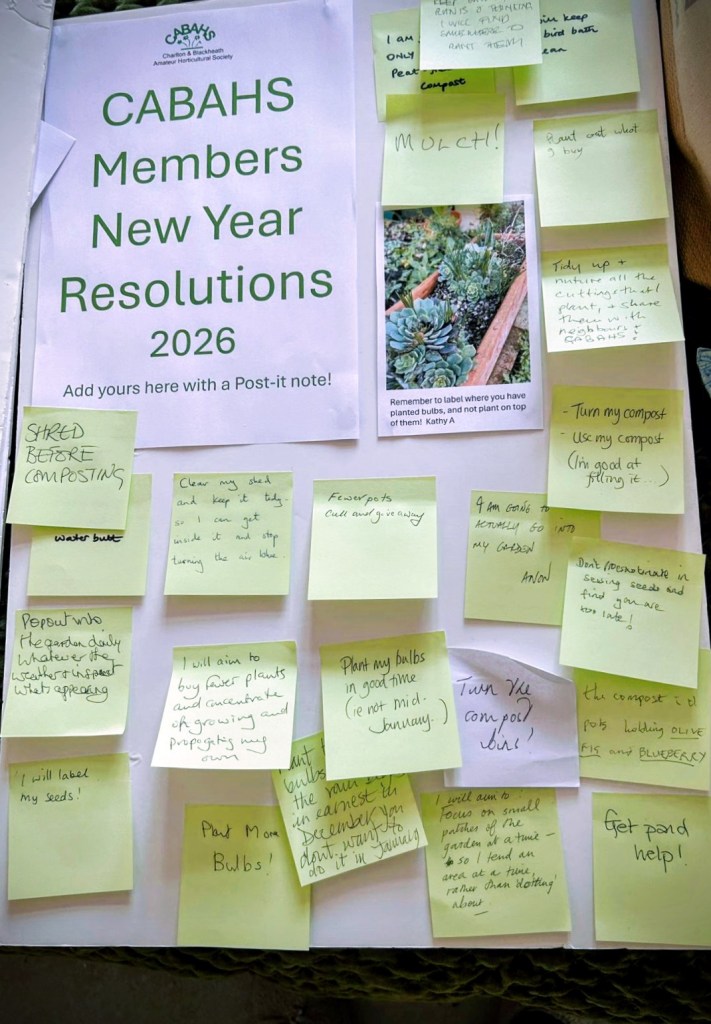 CABAHS
Charlton & Blackheath
Amateur Horticultural Society
CABAHS
Members
New Year
Resolutions
2026
Add yours here with a Post-it note!
I am
ONLY
compost
I WILL FIND
SOMEWHERE TO
keep
bird bath
MULCH!
Plant out what
I buy
Remember to label where you have
planted bulbs, and not plant on top
of them! Kathy A
Tidy up +
nuture all the
cuttings that I
plant, + share
them with
neighbours +
CABAHS!
- Turn my compost
- Use my compost
(I'm good at
filling it...)
SHRED
BEFORE
COMPOSTING
water butt
Clear my shed
and keep it tidy.
so I can get
inside it and stop
turning the air blue.
Fewer pots
Cull and give away
I AM GOING TO
ACTUALLY GO INTO
MY GARDEN
ANON
Don't procrastinate in
sewing seeds and
find you are
too late!
Pop out into
the garden daily
whatever the
weather & inspect
whats appearing
I will aim to
buy fewer plants
and concentrate
on growing and
propogating my
own
Plant my bulbs
in good time
(ie not mid.
January.)
Turn the
compost
bins!
the compost in
pots holding OLIVE
FIG and BLUEBERRY
I will label
my seeds!
Plant More
Bulbs!
bulbs
the
in earnest in
December you
dont want to
do it in January
I will aim to:
Focus on small
patches of the
garden at a time –
so I tend an
area at a time,
rather than 'dotting'
about.
Get pond
help!